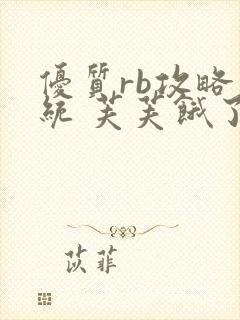 優質rb攻略
統 芙芙餓了
苡菲